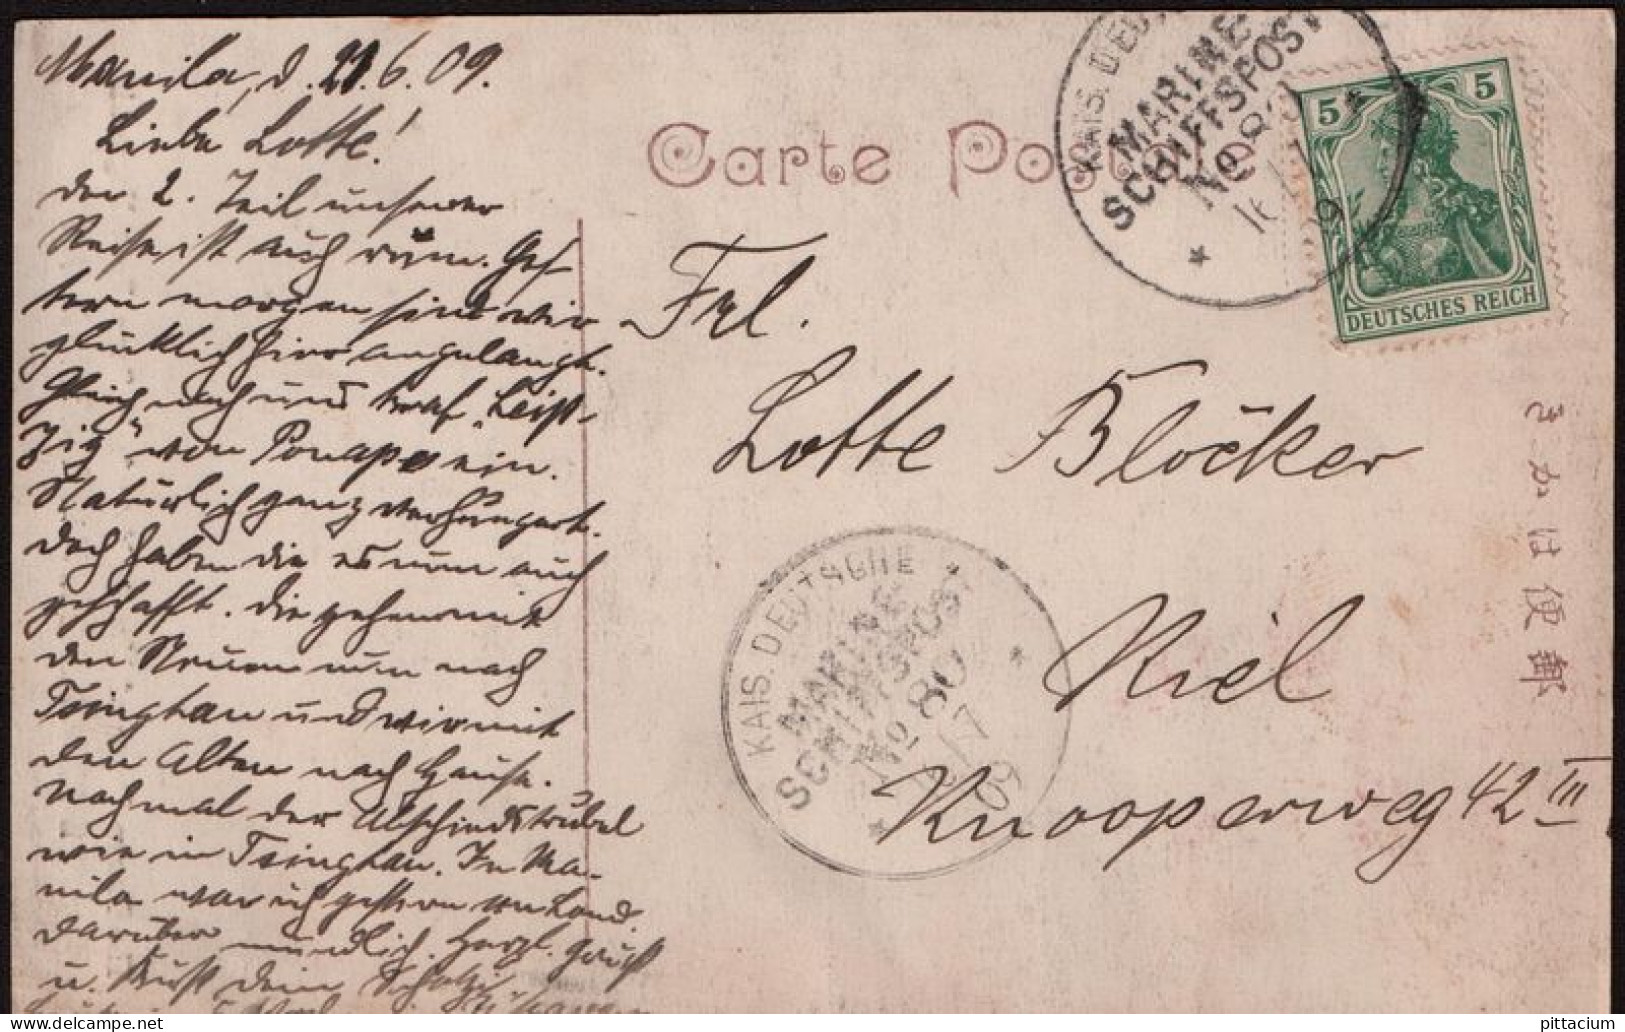 Manila, d. 21.6.09.
Liebe Lotte!
Der 2. Teil unserer
Reise ist auch rum. Ges-
tern morgen sind wir
glücklich hier angelangt.
Gleich nach uns traf „Leip-
zig" von Ponape ein.
Natürlich ganz verhungert.
Doch haben die es nun auch
geschafft. Die gehen mit
den Neuen nun nach
Tsingtau und wir mit
den Alten nach Hause.
Nochmal der Abschiedstrubel
wie in Tsingtau. In Ma-
nila war ich gestern an Land.
Darüber mündlich. Herzl. Gruß
u. Kuß Dein
Carte Postale
KAIS. DEUTSCHE
MARINE
SCHIFFSPOST
No 80
16
09
5 5
DEUTSCHES REICH
Frl.
Lotte Blöcker
Kiel
Knooperweg 42 III
KAIS. DEUTSCHE
MARINE
SCHIFFSPOST
No 80
17
09
きかは便郵
pittacium